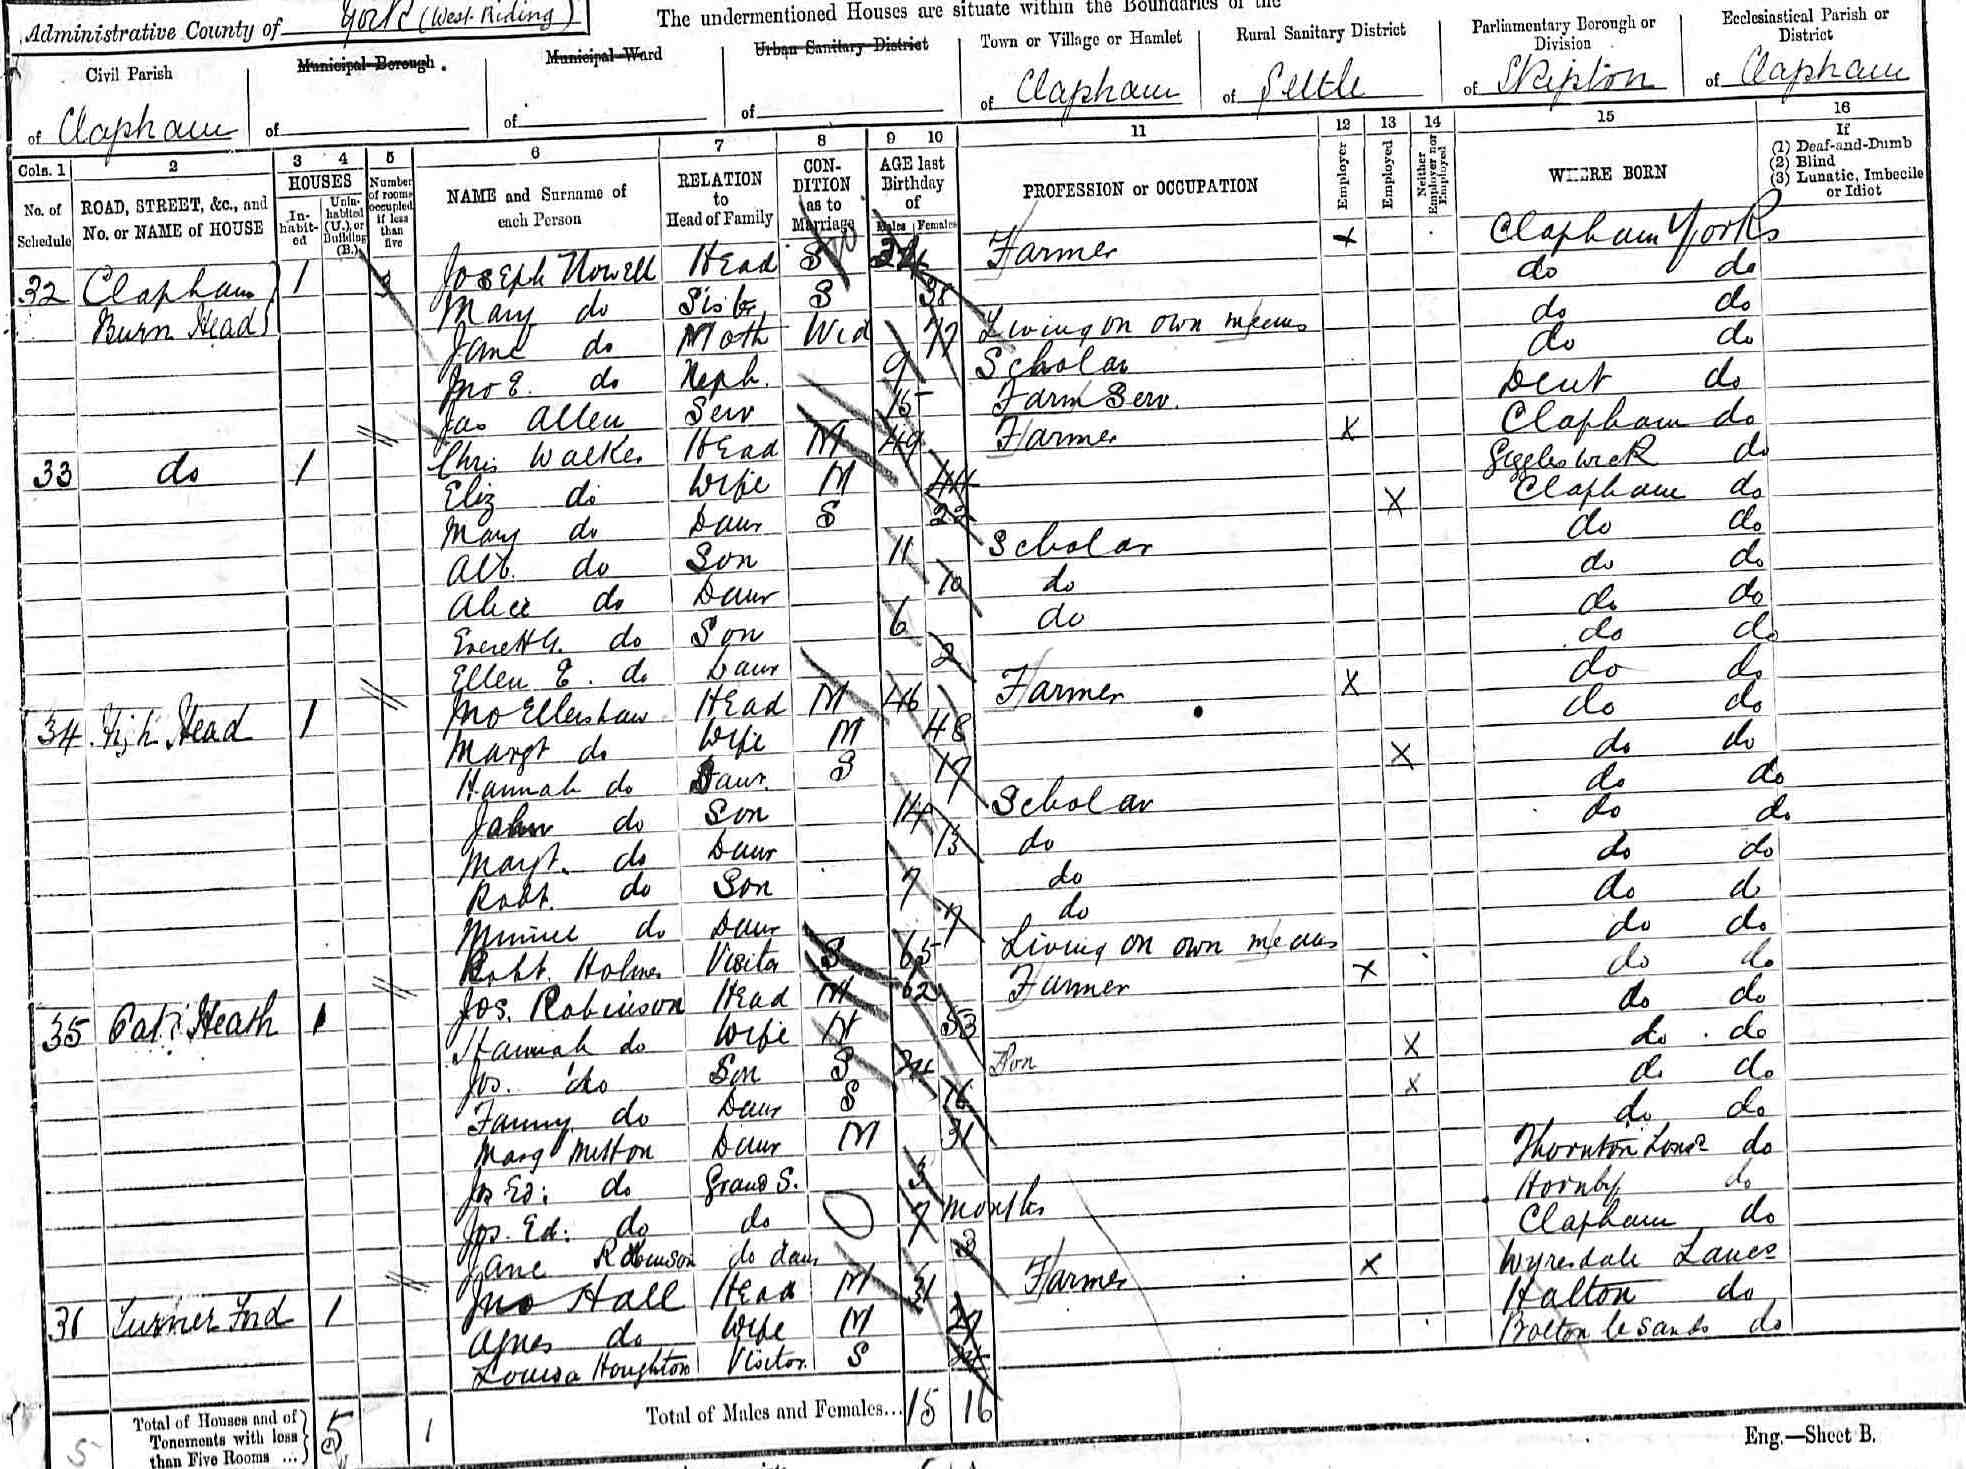 Administrative County of York (West Riding)
The undermentioned Houses are situate within the Boundaries of the
Civil Parish of Clapham
Municipal Borough of
Municipal Ward of
Urban Sanitary District of
Town or Village or Hamlet of Clapham
Rural Sanitary District of Settle
Parliamentary Borough or Division of Skipton
Ecclesiastical Parish or District of Clapham
Cols. 1 2 3 4 5 6 7 8 9 10 11 12 13 14 15 16
No. of Schedule
ROAD, STREET, &c., and No. or NAME of HOUSE
HOUSES
In-habit-ed
Unin-habited (U.), or Building (B.)
Number of rooms occupied if less than five
NAME and Surname of each Person
RELATION to Head of Family
CON-DITION as to Marriage
AGE last Birthday of
Males Females
PROFESSION or OCCUPATION
Employer
Employed
Neither Employer nor Employed
WHERE BORN
If
(1) Deaf-and-Dumb
(2) Blind
(3) Lunatic, Imbecile or Idiot
32 Clapham Burn Head 1 Joseph Nowell Head S Farmer X Clapham Yorks
Mary do Sister S 38 do do
Jane do Moth Wid 77 Living on own means do do
Jno E. do Neph. 9 Scholar do do
Jas Allen Serv 15 Farm Serv. Dent do
33 do 1 Chris Walker Head M 49 Farmer X Clapham do
Eliz do Wife M 44 Giggleswick do
Mary do Daur S 22 X Clapham do
Alb. do Son 11 Scholar do do
Alice do Daur 10 do do do
Everett G. do Son 6 do do do
Ellen E. do Daur 2 do do
34 High Head 1 Jno Ellershaw Head M 46 Farmer X do do
Margt do Wife M 48 do do
Hannah do Daur. S 17 X do do
John do Son 14 Scholar do do
Margt. do Daur 13 do do do
Robt. do Son 7 do do do
Minnie do Daur 7 do do d
Robt. Holmes Visitor S 65 Living on own means do do
35 Heath 1 Jos. Robinson Head M 62 Farmer X do do
Hannah do Wife M 53 do do
Jos. do Son S 24 Son X do do
Fanny do Daur S 16 X do do
Mary Mitton Daur M 31 do do
Jos Ed: do Grand S. 3 Thornton Lonsd. do
Jos. Ed: do do 7 months Hornby do
Jane Robinson do daur 3 Clapham do
36 Turner Ford 1 Jno Hall Head M 31 Farmer X Wyresdale Lancs
Agnes do Wife M 27 Halton do
Louisa Houghton Visitor S 24 Bolton le Sands do
Total of Houses and of Tenements with less than Five Rooms ... 5 1
Total of Males and Females... 15 16
5
Eng.—Sheet B.